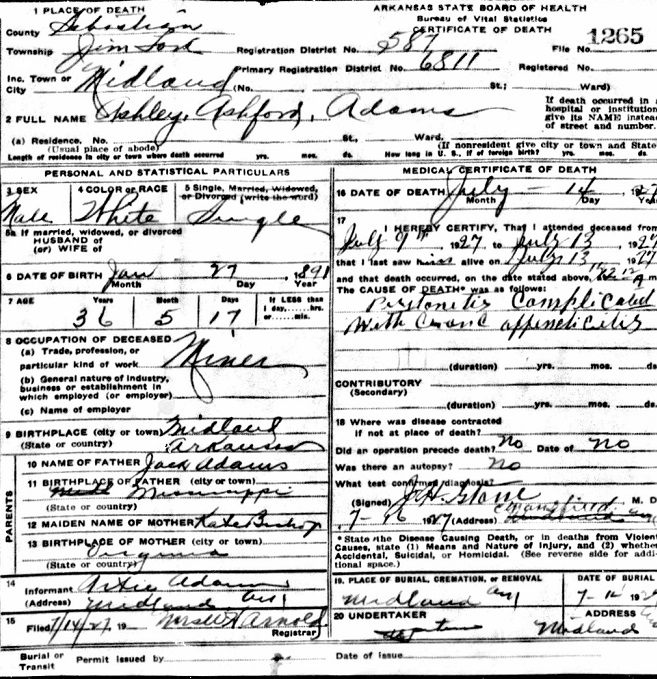 1 PLACE OF DEATH
ARKANSAS STATE BOARD OF HEALTH
Bureau of Vital Statistics
CERTIFICATE OF DEATH
County Sebastian
Township Jim Fork
Registration District No. 587
File No. 1265
Inc. Town or City Midland
Primary Registration District No. 6811
Registered No.
(No. St.; Ward)
2 FULL NAME Ashley, Ashford, Adams
If death occurred in a
hospital or institution
give its NAME instead
of street and number.
(a) Residence. No. St., Ward.
(Usual place of abode) (If nonresident give city or town and State
Length of residence in city or town where death occurred yrs. mos. ds. How long in U. S., if of foreign birth? yrs. mos. ds.
PERSONAL AND STATISTICAL PARTICULARS
3 SEX
Male
4 COLOR or RACE
White
5 Single, Married, Widowed,
or Divorced (write the word)
Single
5a If married, widowed, or divorced
HUSBAND of
(or) WIFE of
6 DATE OF BIRTH Jan 27, 1891
Month Day
7 AGE Years Month Days If LESS than
1 day, hrs.
or min.
36 5 17
8 OCCUPATION OF DECEASED
(a) Trade, profession, or
particular kind of work Miner
(b) General nature of industry,
business or establishment in
which employed (or employer)
(c) Name of employer
9 BIRTHPLACE (city or town) Midland
(State or country) Arkansas
PARENTS
10 NAME OF FATHER Jack Adams
11 BIRTHPLACE OF FATHER (city or town)
Mississippi
(State or country)
12 MAIDEN NAME OF MOTHER Kate Bishop
13 BIRTHPLACE OF MOTHER (city or town)
Virginia
(State or country)
14
Informant Artie Adams
(Address) Midland Ark
15
Filed 7/14/27, 19 Arnold
Registrar
MEDICAL CERTIFICATE OF DEATH
16 DATE OF DEATH July - 14 27
Month Day Year
17
I HEREBY CERTIFY, That I attended deceased from
July 9th 1927 to July 13 1927
that I last saw him alive on July 13 1927
and that death occurred, on the date stated above, at 12
The CAUSE OF DEATH* was as follows:
Peritonitis Complicated
With appendicitis
(duration) yrs. mos. ds.
CONTRIBUTORY
(Secondary)
(duration) yrs. mos. ds.
18 Where was disease contracted
if not at place of death?
Did an operation precede death? No Date of No
Was there an autopsy? No
What test confirmed diagnosis?
(Signed) M. D.
7-16 1927 (Address) Mansfield
*State the Disease Causing Death, or in deaths from Violent
Causes, state (1) Means and Nature of Injury, and (2) whether
Accidental, Suicidal, or Homicidal. (See reverse side for addi-
tional space.)
19. PLACE OF BURIAL, CREMATION, OR REMOVAL DATE OF BURIAL
Midland Ark
20 UNDERTAKER ADDRESS
Midland
Burial or
Transit Permit issued by Date of issue